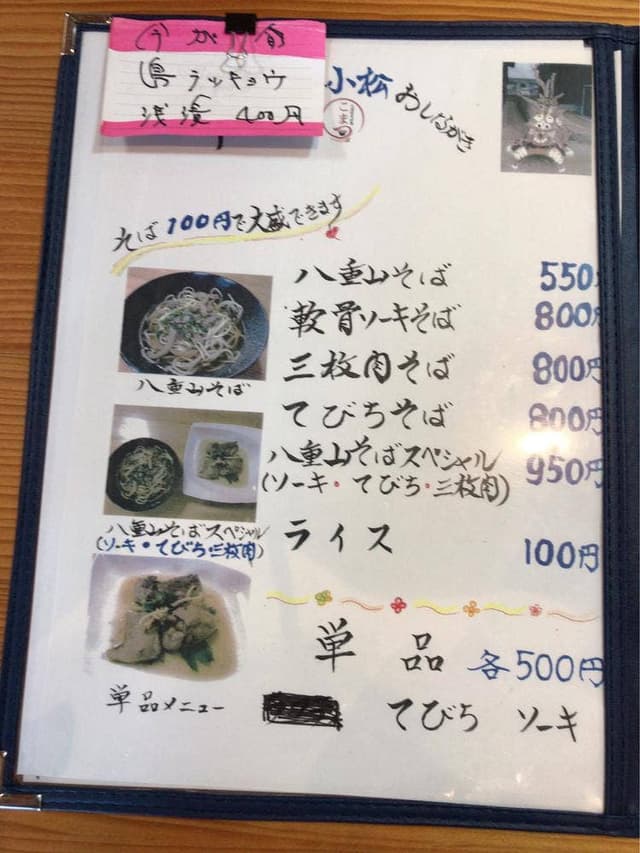 今が旬
島ラッキョウ
浅漬 400円
小松 おしながき
こまつ
そば100円で大盛できます
八重山そば 550
軟骨ソーキそば 800円
三枚肉そば 800円
てびちそば 800円
八重山そばスペシャル 950円
(ソーキ・てびち・三枚肉)
ライス 100円
八重山そば
八重山そばスペシャル
(ソーキ・てびち・三枚肉)
単品 各500円
単品メニュー
てびち ソーキ